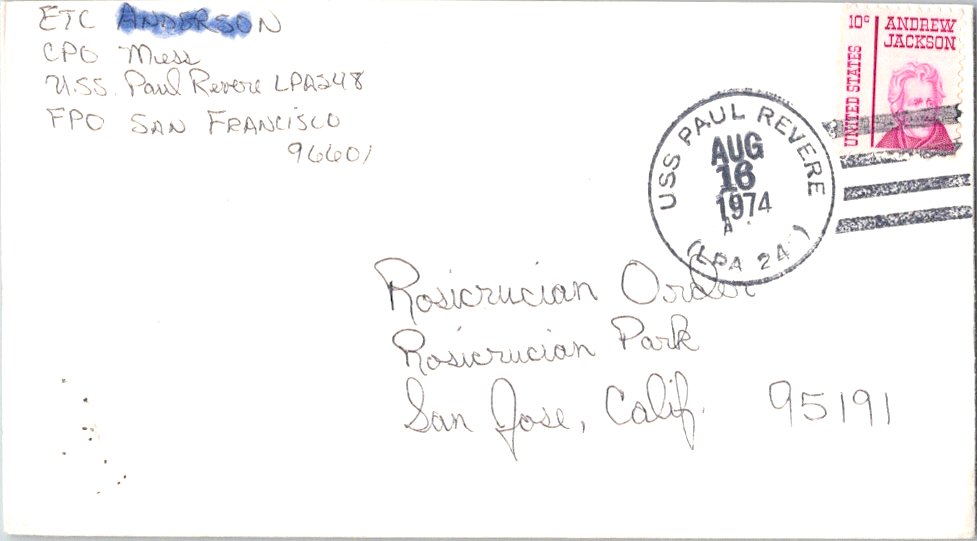 ETC ANDERSON
CPO Mess
U.S.S. Paul Revere LPA248
FPO SAN FRANCISCO
96601
10c ANDREW JACKSON
UNITED STATES
USS PAUL REVERE
AUG
16
1974
A
(LPA 24 )
Rosicrucian Order
Rosicrucian Park
San Jose, Calif. 95191